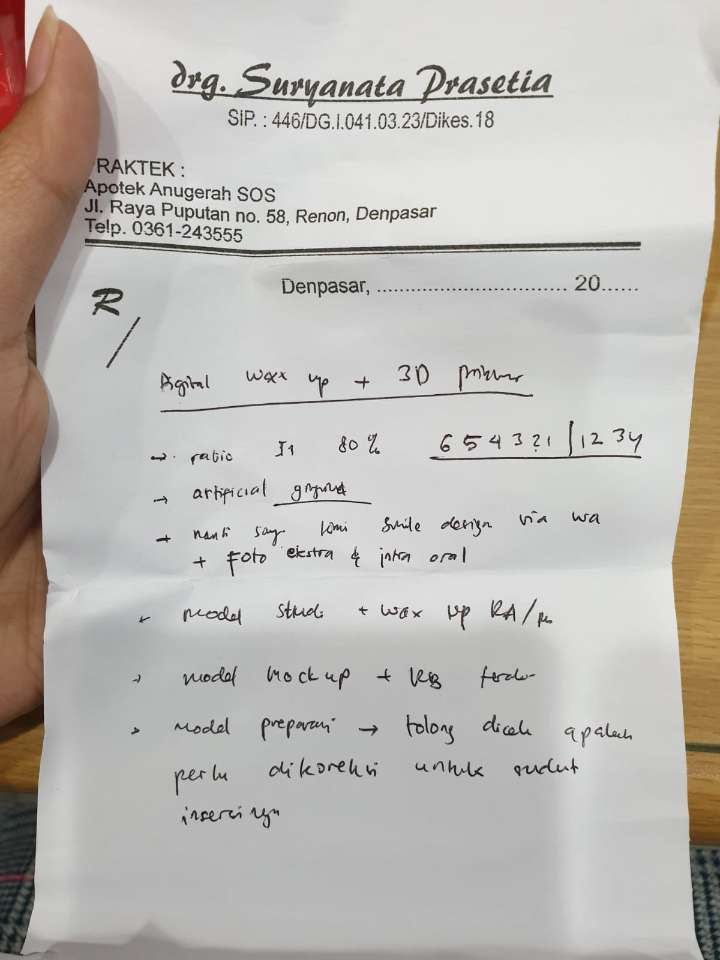 drg. Suryanata Prasetia
SiP. : 446/DG.I.041.03.23/Dikes.18
RAKTEK :
Apotek Anugerah SOS
Jl. Raya Puputan no. 58, Renon, Denpasar
Telp. 0361-243555
Denpasar, ................................. 20......
R/
Digital wax up + 3D
→ ratio I1 80% 654321|1234
→ artificial
→ nanti saya kirim smile design via wa
+ Foto ekstra & intra oral
→ model studi + wax up RA/
→ model mock up + RB
→ model preparasi → tolong dicek apakah
perlu dikoreksi untuk sudut
insersinya